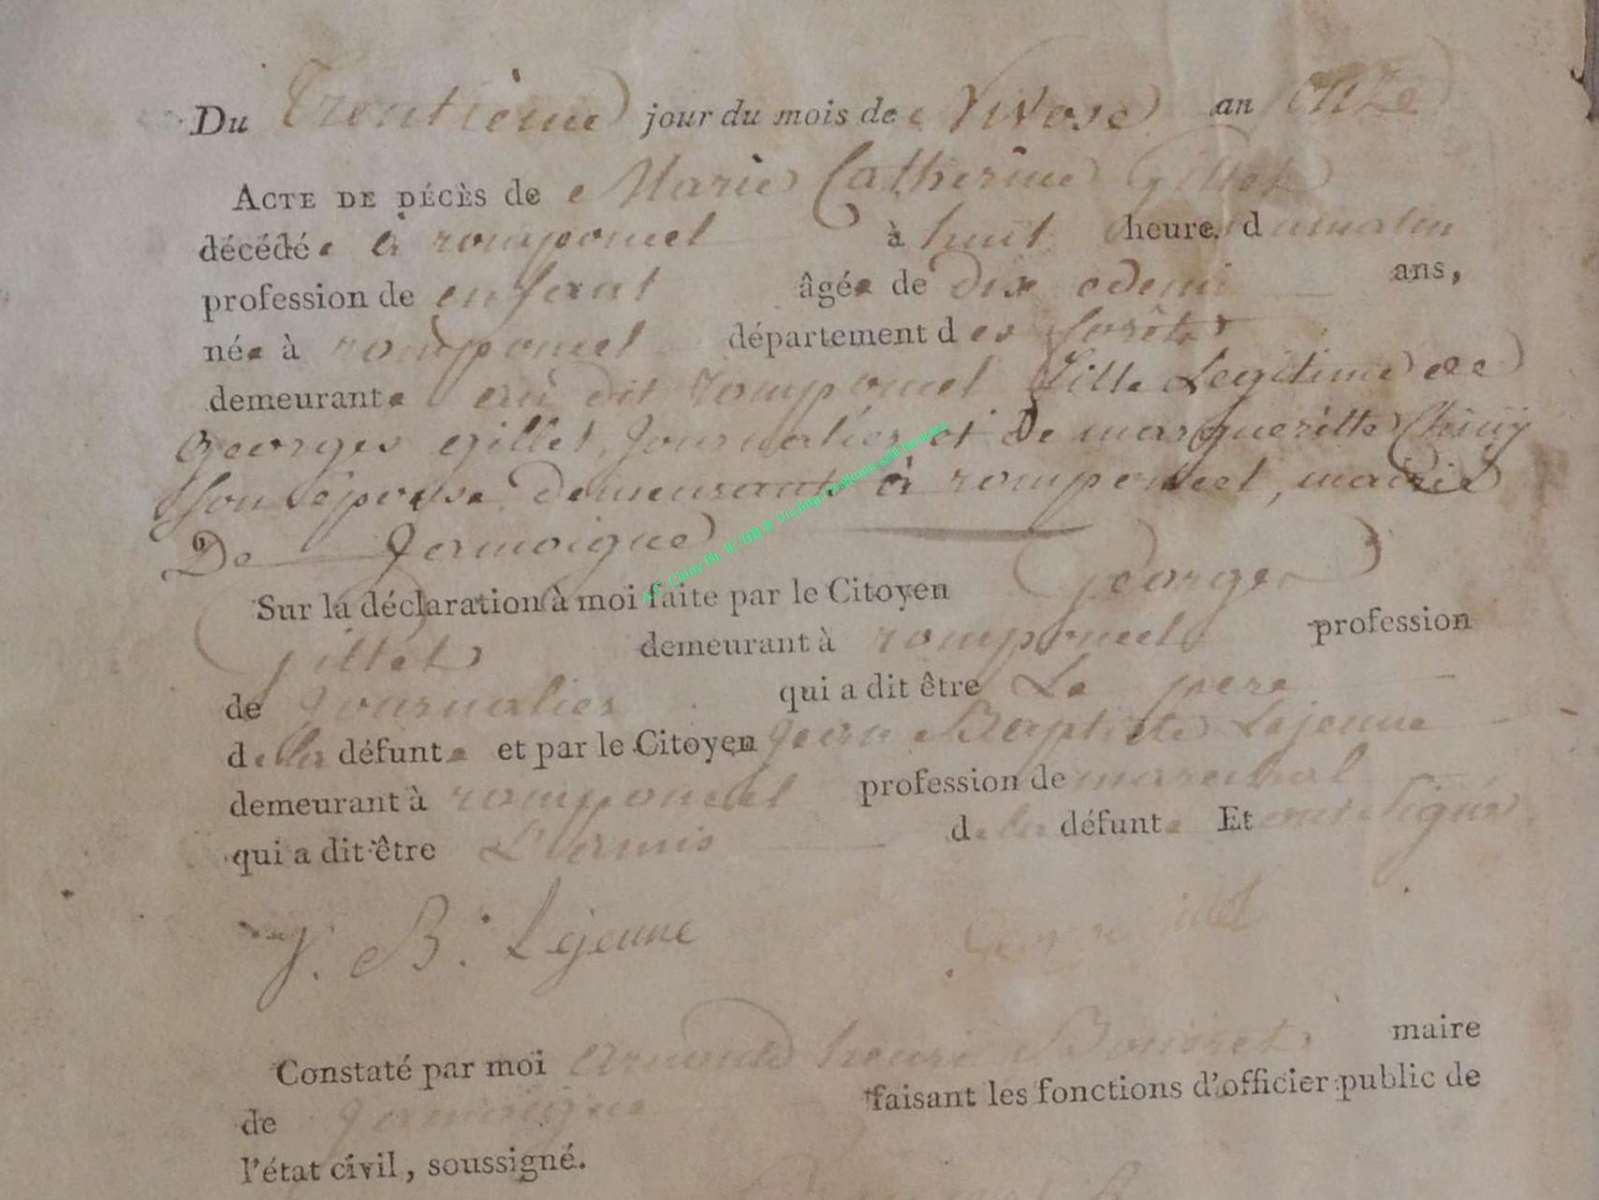 Du Trentième jour du mois de Nivose an onze
ACTE DE DÉCÈS de Marie Catherine Gillet
décédée à romponcel à huit heures du matin
profession de enfant âgée de dix edemi ans,
née à romponcel département des forêts
demeurante au dit romponcel fille Legitime de
georges gillet, journalier et De margueritte Chiny
son épouse demeurant à romponcel, mairie
De Jamoigne
Sur la déclaration à moi faite par le Citoyen georges
gillet demeurant à romponcel profession
de journalier qui a dit être Le pere
de la défunte et par le Citoyen jean Baptiste Lejeune
demeurant à romponcel profession de marechal
qui a dit être L'amis de la défunte Et ont signé
J. B. Lejeune
Constaté par moi henri maire
de jamoigne faisant les fonctions d'officier public de
l'état civil, soussigné.